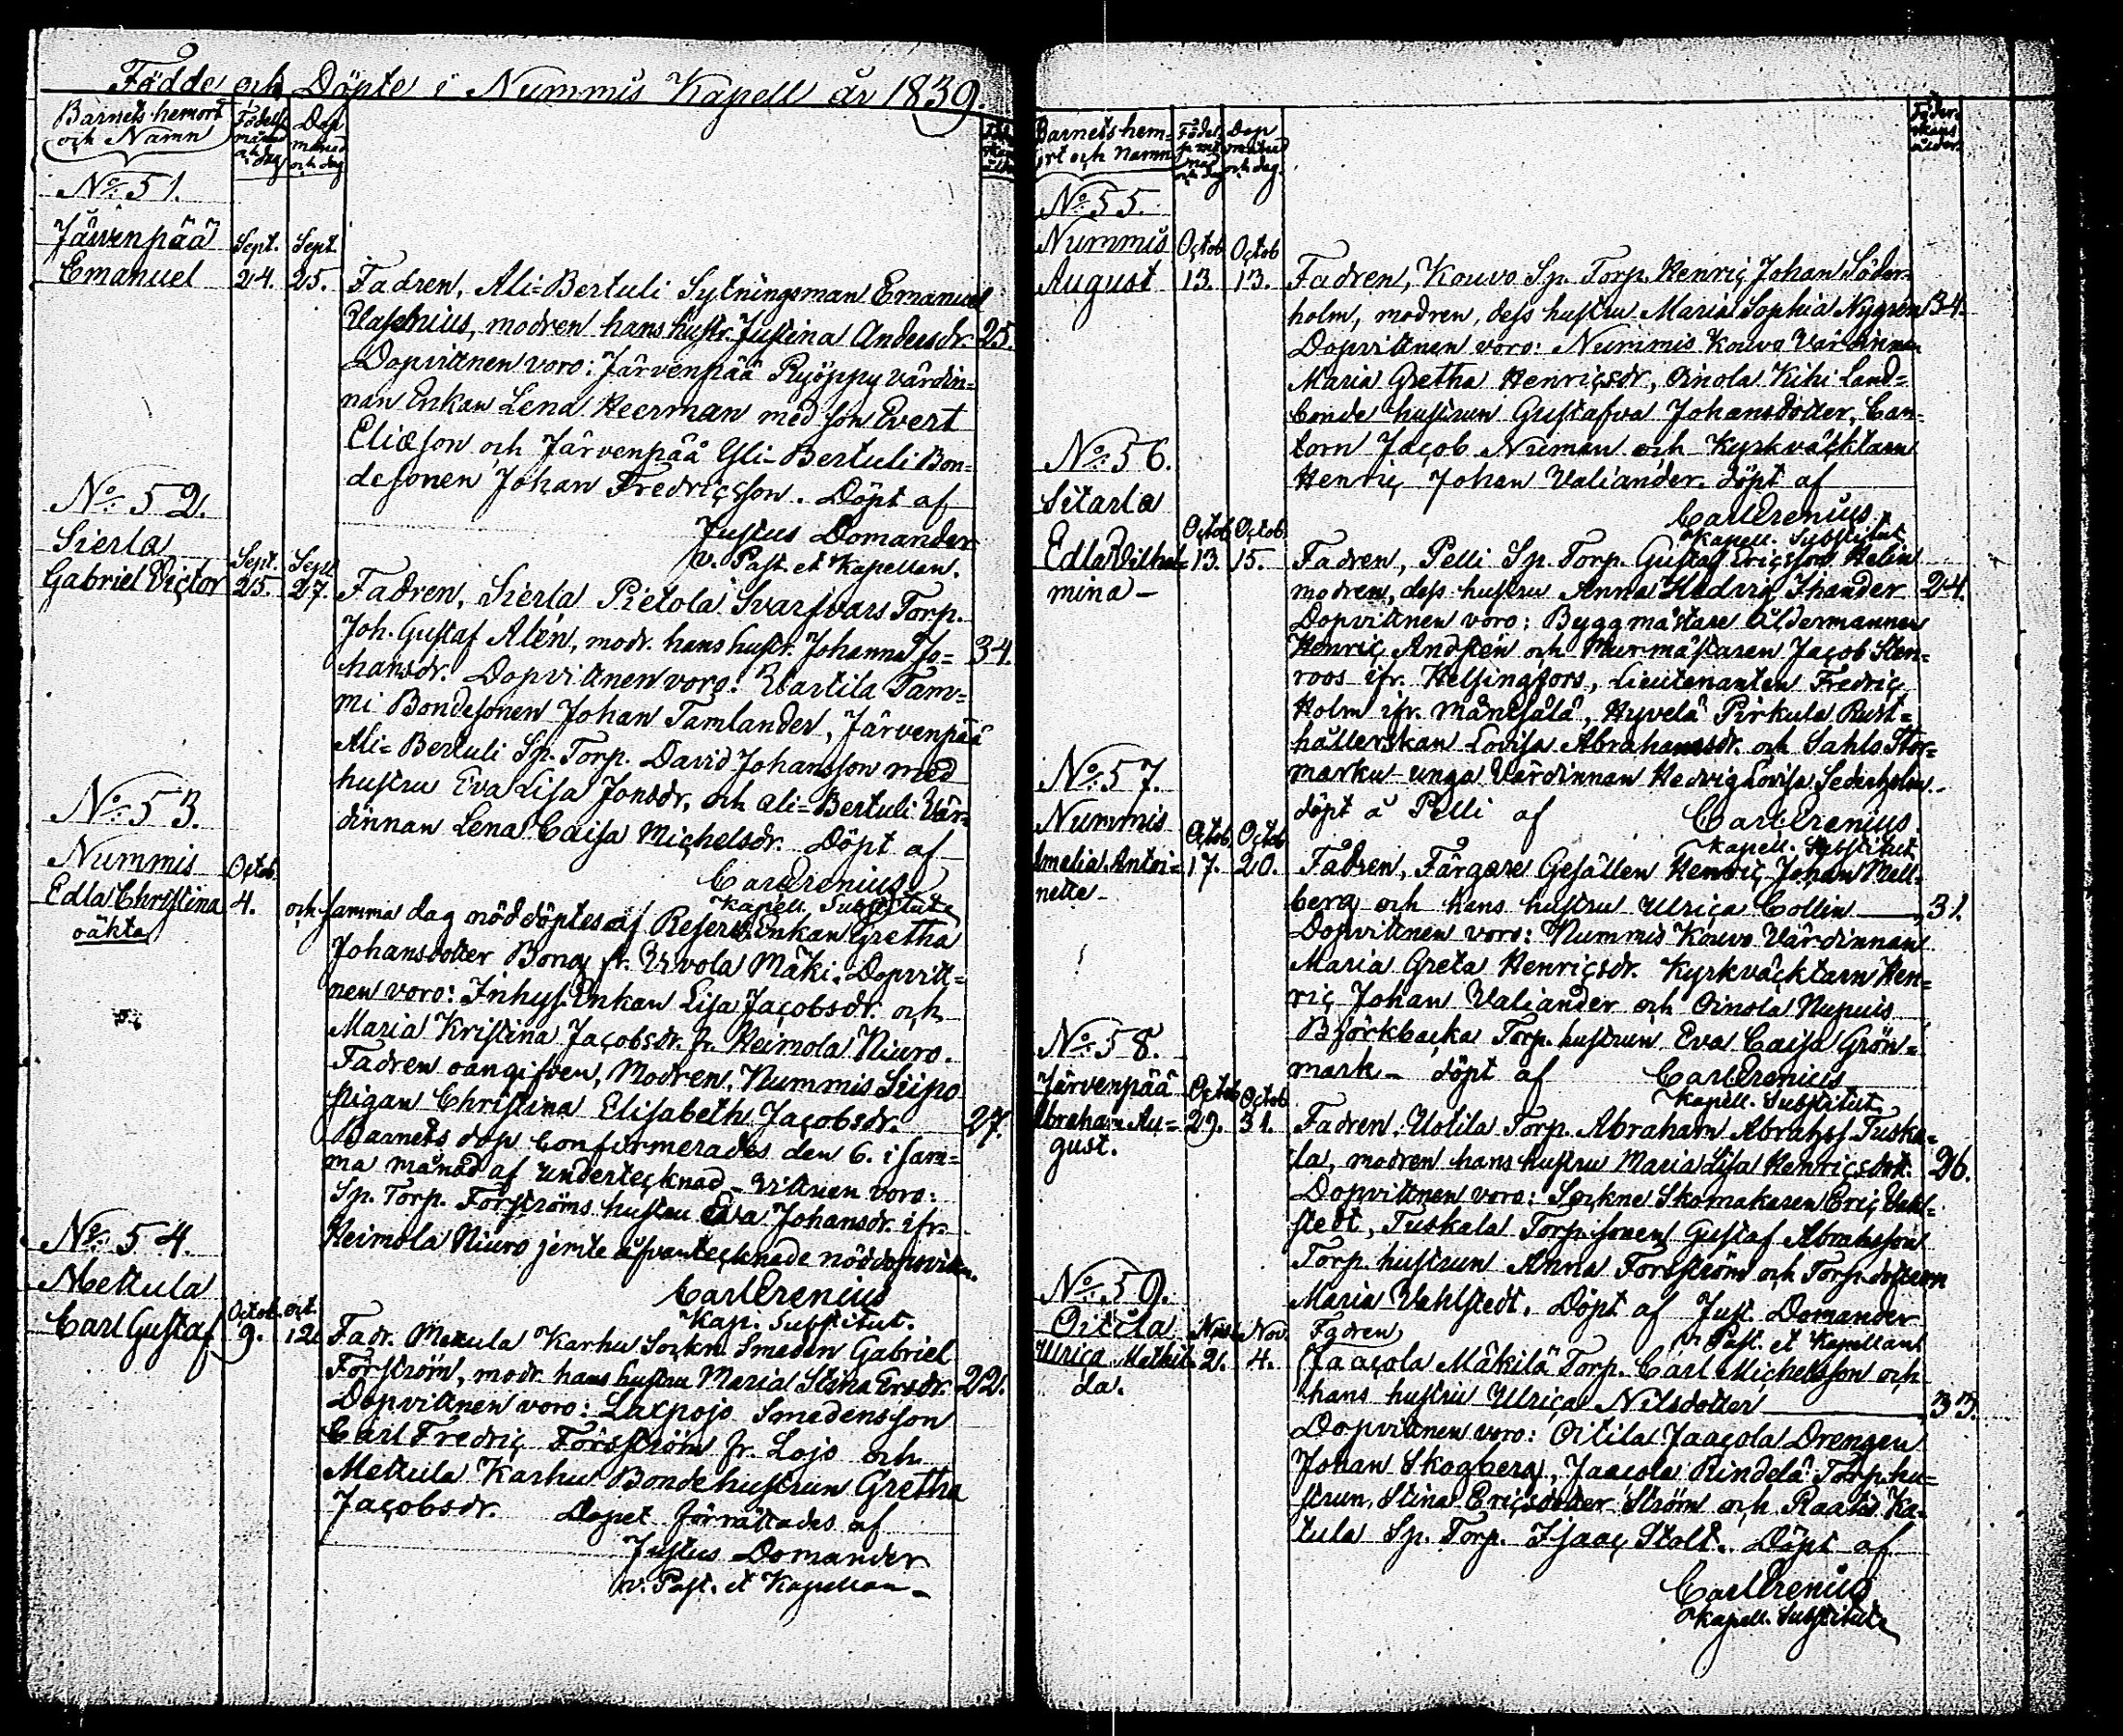 Födde och Döpte i Nummis Kapell år 1839.
Barnets hemort
och Namn
Födelse
månad
och dag
Dop
månad
och dag
No. 51.
Järvenpää
Emanuel
Sept.
24.
Sept.
25.
Fadren, Ali-Bertuli Sytningsman Emanuel
modren hans hustr. Justina Andersdr. 25.
Dopvittnen voro: Järvenpää Ryöppy värdin-
nan Enkan Lena Heerman med son Evert
Eliæson och Järvenpää Yli-Bertuli Bon-
desonen Johan Fredricsson. Döpt af
Justus Domander
v. Past. et Kapellan.
No. 52.
Sierla
Gabriel Victor
Sept.
25.
Sept
27.
Fadren, Sierla Pietola Svarfvars Torp.
Joh. Gustaf Alén, modr. hans hustr. Johanna Jo- 34.
hansdr. Dopvittnen voro: Vartila Tam-
mi Bondesonen Johan Tamlander, Järvenpää
Ali-Bertuli Sp. Torp. David Johansson med
hustru Eva Lisa Jonsdr. och Ali-Bertuli Vär-
dinnan Lena Caisa Michelsdr. Döpt af
Carl Crenius
Kapell. Substitut
No. 53.
Nummis
Edla Christina
oäkta
Octob.
4.
och samma dag nöddöptes af Reserv. Enkan Gretha
Johansdotter Bong fr. Vivola Mäki. Dopvitt-
nen voro: Inhys. Enkan Lisa Jacobsdr. och
Maria Kristina Jacobsdr. fr. Heimola Niuro.
Fadren oangifven, Modren, Nummis Siipo
pigan Christina Elisabeth Jacobsdr. 27.
Barnets dop confirmerades den 6. i sam-
ma månad af undertecknad - Vittnen voro:
Sp. Torp. Forströms hustru Eva Johansdr. ifr.
Heimola Niuro jemte ofvantecknade nöddopsvittn.
Carl Crenius
Kap. Substitut.
No. 54.
Mettula
Carl Gustaf
Octob.
9.
oct.
12.
Fadr. Mettula Karhu Sockn. Smeden Gabriel
Forström, modr. hans hustru Maria Stina Ersdr. 22.
Dopvittnen voro: Laxpojo Smedensson
Carl Fredric Forsström fr. Lojo och
Mettula Karhu Bondehustrun Gretha
Jacobsdr. Dopet förrättades af
Justus Domander
v. Past. et Kapellan
Barnets hem-
ort och Namn
Födel-
se må
nad
och dag
Dop
månad
och dag.
Föder-
skans
ålder.
No. 55.
Nummis
August
Octob
13.
Octob
13.
Fadren, Kouvo Sp. Torp. Henric Johan Söder-
holm, modren, dess hustru Maria Sophia Nygren 34.
Dopvittnen voro: Nummis Kouvo Värdinnan
Maria Gretha Henricsdr, Oinola Kihi Land-
bonde hustrun Gustafva Johansdotter, Can-
torn Jacob Numan och Kyrkväcktarn
Henric Johan Valiander. döpt af
Carl Crenius
Kapell. Substitut
No. 56.
Sitarla
Edla Vilhel-
mina -
Octob
13.
Octob.
15.
Fadren, Pelli Sp. Torp. Gustaf Ericsson Helin
modren, dess hustru Anna Hedvig Ihander 24.
Dopvittnen voro: Byggmästare Åldermannen
Henric Andstén och Murmästaren Jacob Sten-
roos ifr. Helsingfors, Lieutenanten Fredric
Holm ifr. Mäntsälä, Hyvelä Pirkula Rust-
hållerskan Lovisa Abrahamsdr. och Sahlo Stor-
marku unga Värdinnan Hedvig Lovisa Sederholm
döpt å Pelli af Carl Crenius.
Kapell. Substitut
No. 57.
Nummis
Amelia Antoi-
nette
Octob
17.
Octob
20.
Fadren, Färgare Gesällen Henric Johan Mell-
berg och hans hustru Ulrica Collin 31.
Dopvittnen voro: Nummis Kouvo Värdinnan
Maria Greta Henricsdr. Kyrkväcktarn Hen-
ric Johan Valiander och Oinola Nupuis
Björkbacka Torp. hustrun Eva Caisa Grön-
mark - döpt af Carl Crenius
Kapell. Substitut
No. 58.
Järvenpää
Abraham Au-
gust.
Octob
29.
Octob
31.
Fadren, Uotila Torp. Abraham Abrahss. Tuska-
la, modren hans hustru Maria Lisa Henricsdott. 26.
Dopvittnen voro: Sockne Skomakaren Eric Vahl-
stedt, Tuskala Torp. sonen Gustaf Abrahsson
Torp. hustrun Anna Forsström och Torp. dottren
Maria Vahlstedt. Döpt af Just. Domander
v. Past. et Kapellan
No. 59.
Oitila
Ulrica Mathil-
da.
Nov.
2.
Nov.
4.
Fadren
Jaacola Mäkilä Torp. Carl Michelsson och
hans hustru Ulrica Nilsdotter 33.
Dopvittnen voro: Oitila Jaacola Drengen
Johan Skogberg, Jaacola Rindelä Torp. hu-
strun Stina Ericsdotter Ström och Raato Ka-
tula Sp. Torp. Isaac Stolt. Döpt af
Carl Crenius
Kapell. Substitut